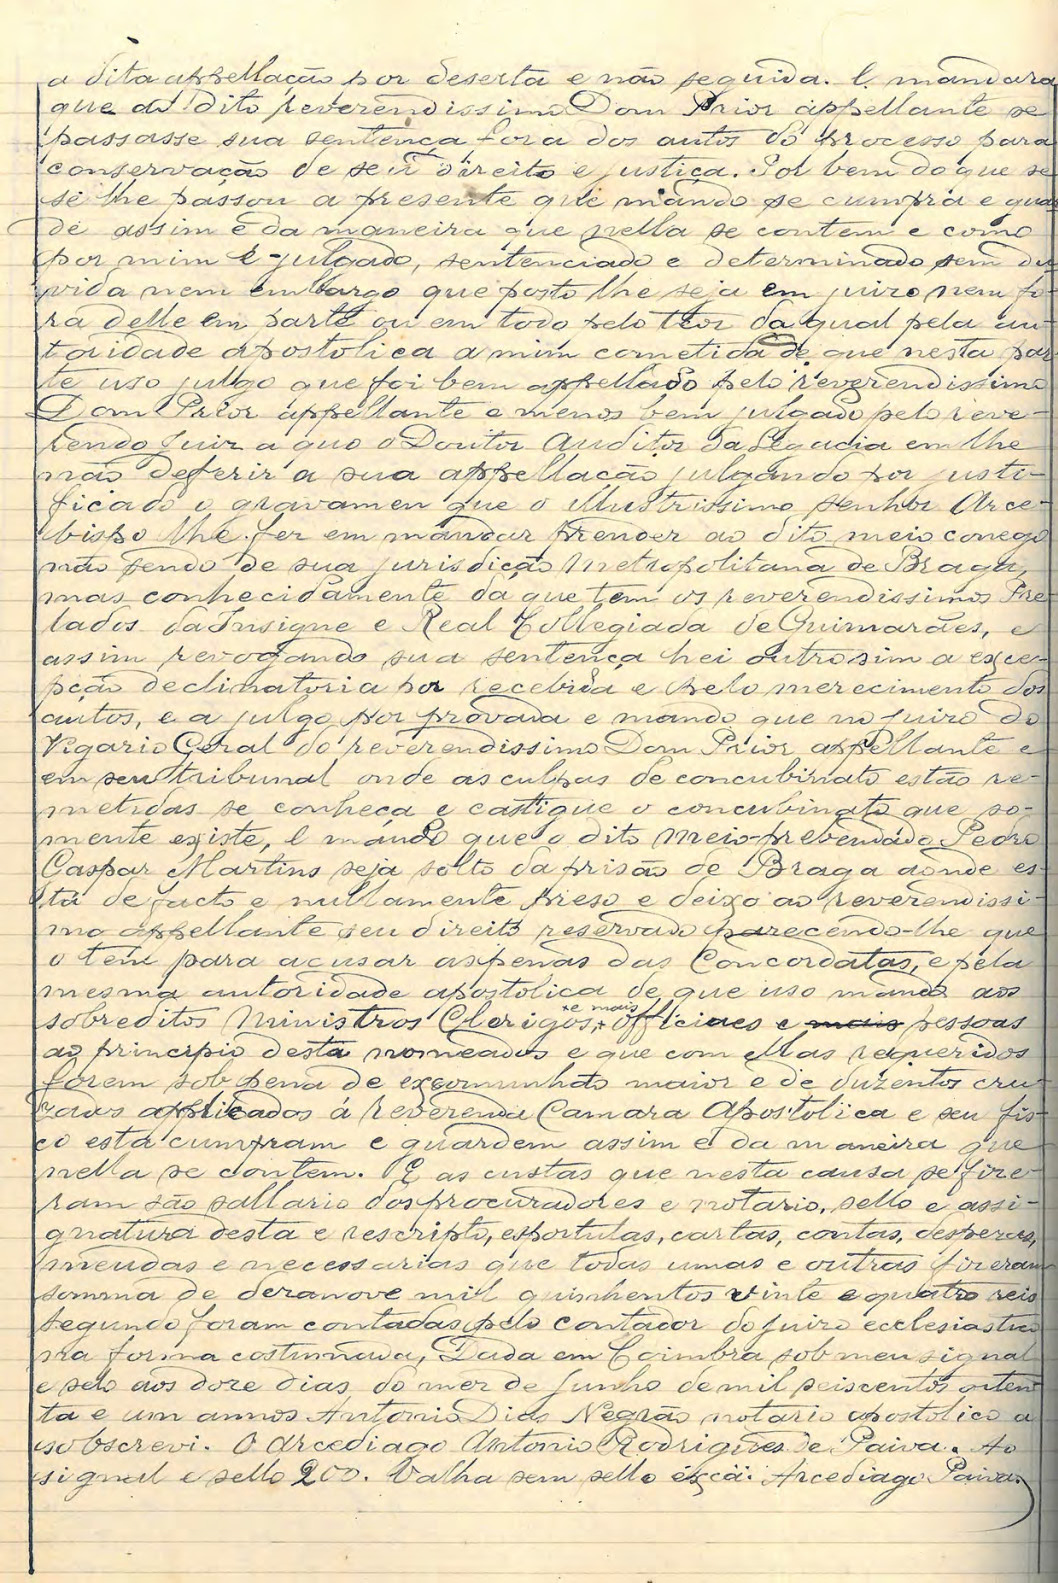 a dita appellação por deserta e não seguida. E mandara
que ao dito reverendissimo Dom Prior appellante se
passasse sua sentença fora dos autos do processo para
conservação de seu direito e justiça. Pol bem do que se
se lhe passou a presente que mando se cumpra e guar
de assim e da maneira que nella se contem e como
por mim é julgado, sentenciado e determinado sem du
vida nem embargo que posto lhe seja em juizo nem fo
ra delle em parte ou em todo pelo teor da qual pela au
toridade apostolica a mim cometida de que nesta par
te uso julgo que foi bem appellado pelo reverendissimo
Dom Prior appellante e menos bem julgado pelo reve-
rendo Juiz a quo o Doutor Auditor da Legacia em lhe
não deferir a sua appellação julgando por justi-
ficado o gravamen que o illustrissimo senhor Arce-
bispo lhe fez em mandar prender ao dito meio conego
não sendo de sua jurisdição Metropolitana de Braga,
mas conhecidamente da que tem os reverendissimos Pre
lados da Insigne e Real Collegiada de Guimarães, e
assim revogando sua sentença hei outrosim a exce-
pção declinatoria por recebida e pelo merecimento dos
autos, e a julgo por provada e mando que no juizo do
Vigario Geral do reverendissimo Dom Prior appellante e
em seu tribunal onde as culpas de concubinato estão re-
metidas se conheça e castigue o concubinato que so-
mente existe, e mando que o dito meio-prebendado Pedro
Caspar Martins seja solto da prisão de Braga aonde es-
tá de facto e nullamente preso e deixo ao reverendissi-
mo appellante seu direito reservado parecendo-lhe que
o tem para acusar as penas das Concordatas, e pela
mesma autoridade apostolica de que uso mando aos
sobreditos Ministros Clerigos, *e mais officiaes e mais pessoas
ao principio desta nomeados e que com ellas requeridos
forem sob pena de excomunhão maior e de duzentos cru
zados applicados á reverenda Camara Apostolica e seu fis-
co esta cumpram e guardem assim e da maneira que
nella se contem. E as custas que nesta causa se fize-
ram são sallario dos procuradores e notario, sello e assi-
gnatura desta e rescripto, esportulas, cartas, contas, despezas,
meudas e necessarias que todas umas e outras fizeram
somma de dezanove mil quinhentos vinte e quatro reis
segundo foram contadas pelo contador do juizo ecclesiastico
na forma costumada, Dada em Coimbra sob meu signal
e selo aos doze dias do mez de Junho de mil seiscentos oiten
ta e um annos Antonio Dias Negrão notario apostolico a
sobscrevi. O Arcediago Antonio Rodrigues de Paiva. Ao
signal e sello 200. Valha sem sello Arcediago Paiva.